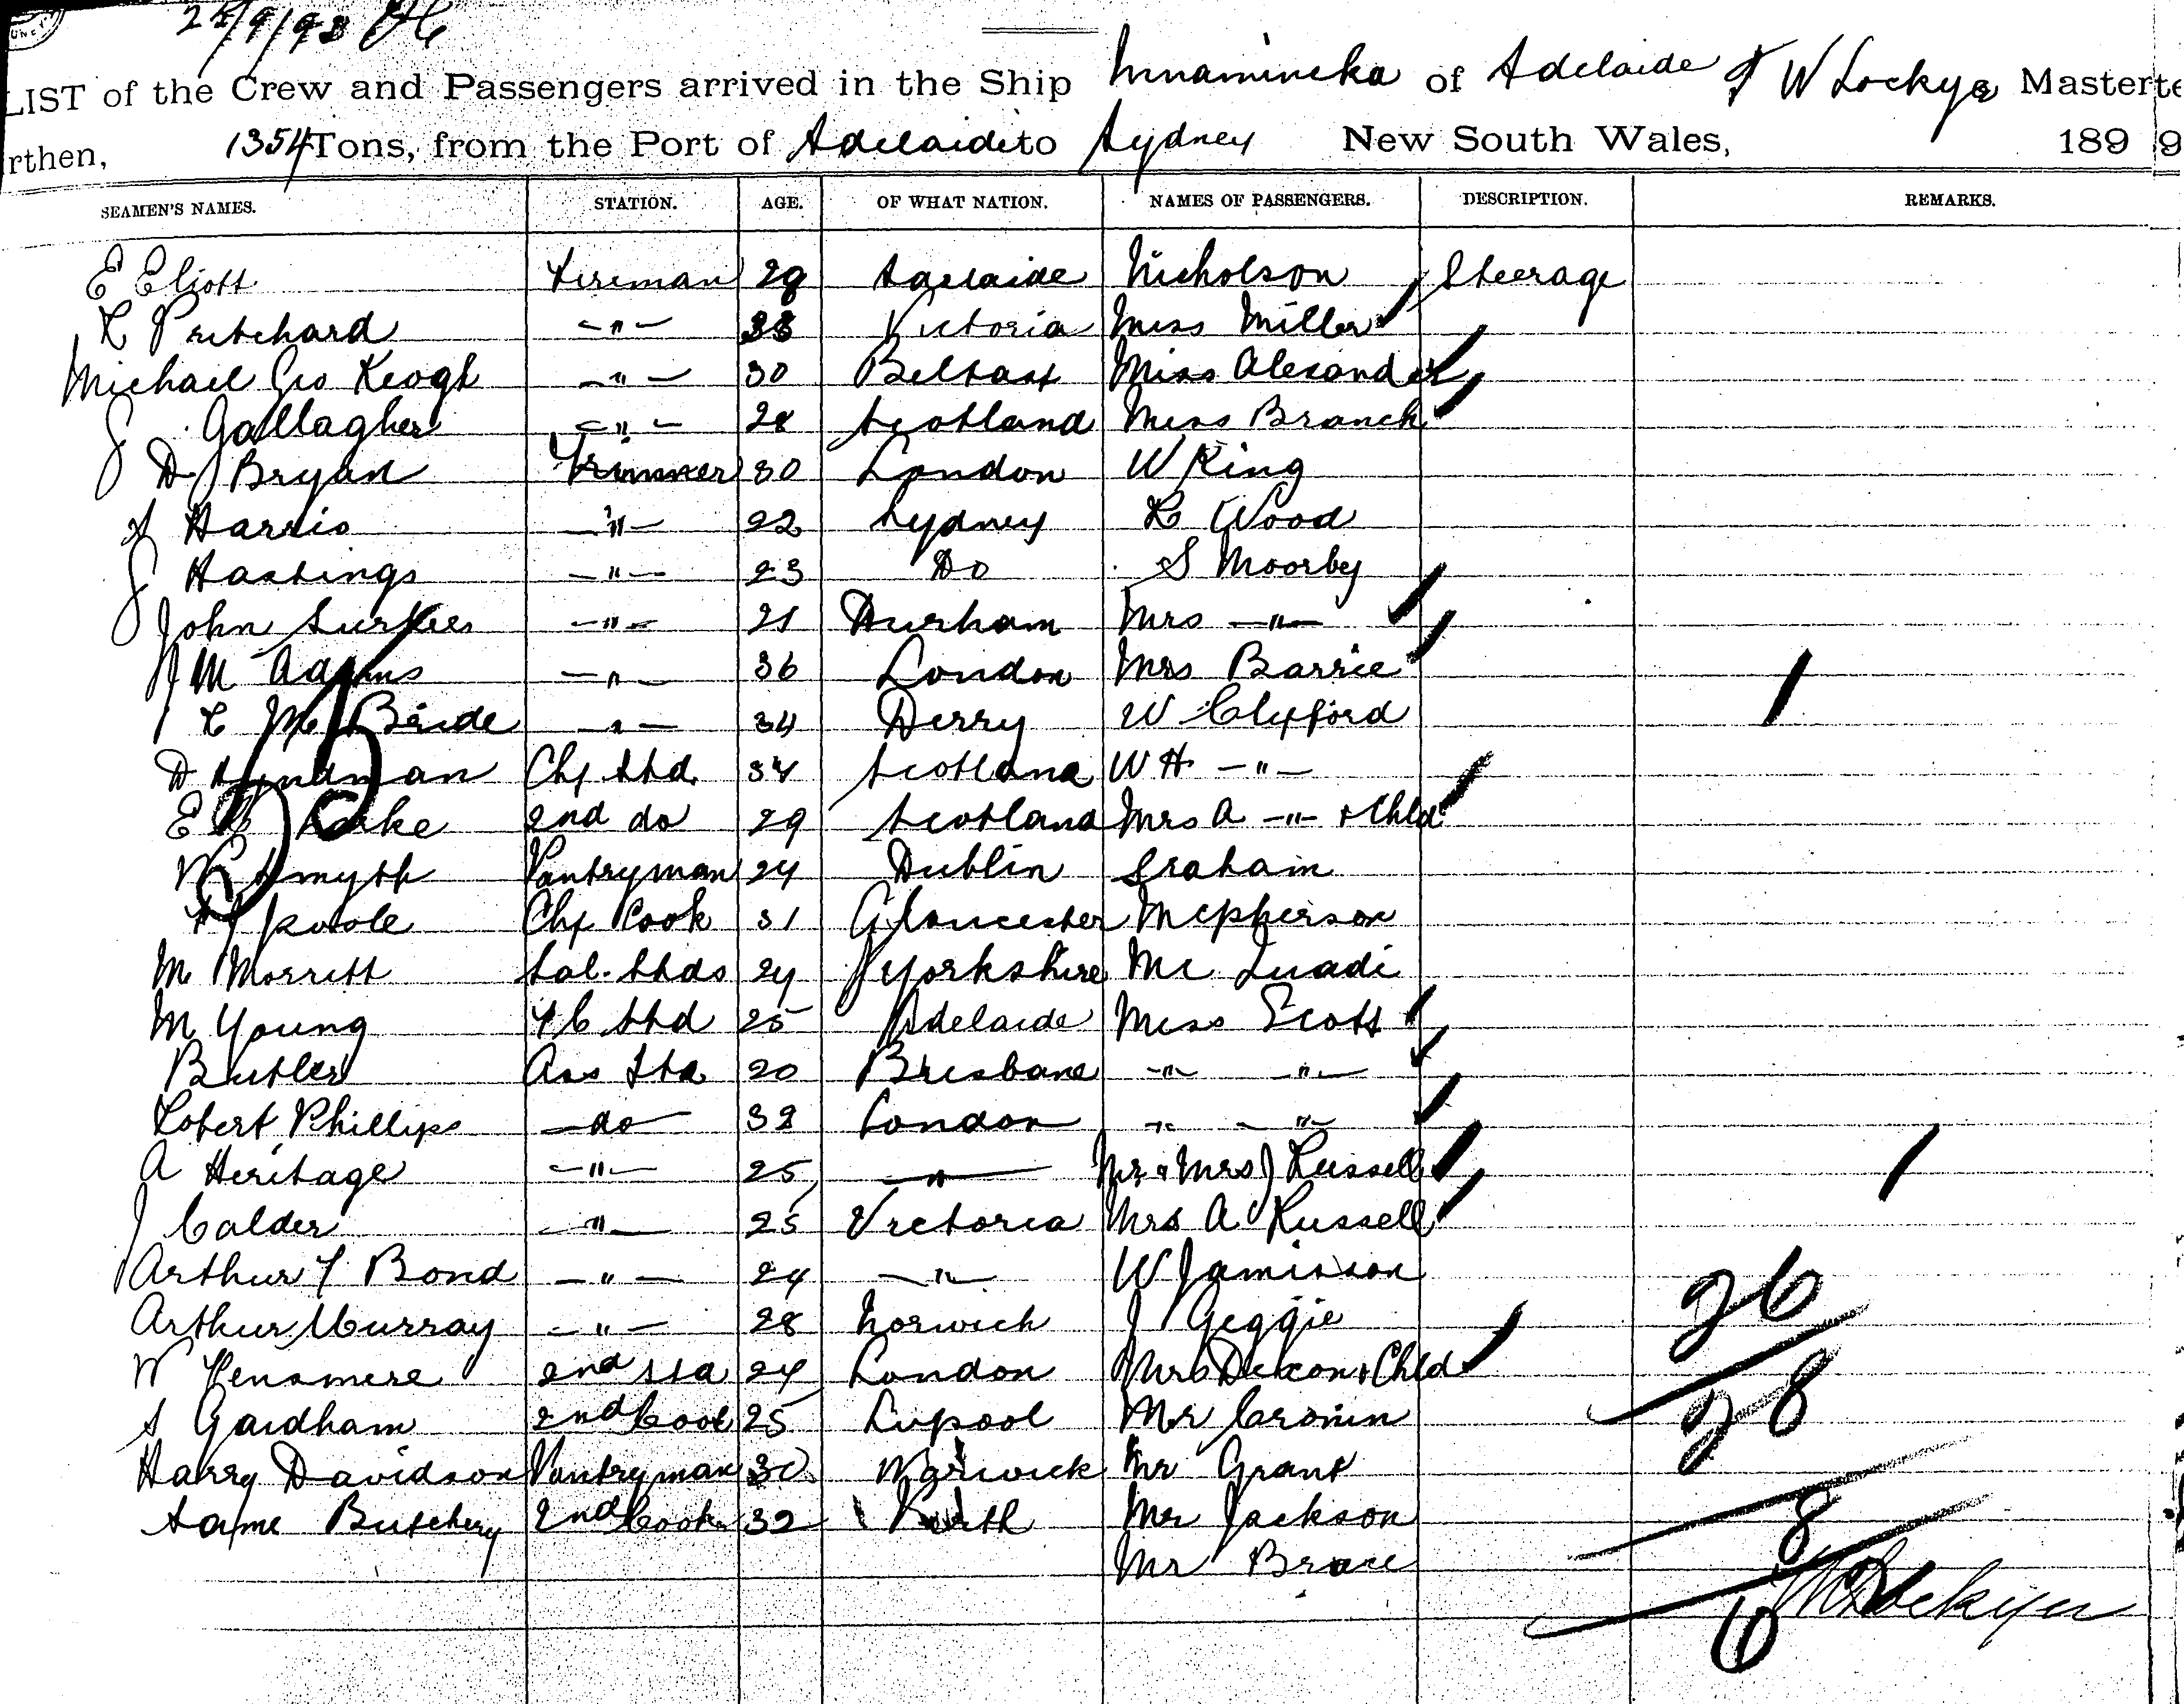 LIST of the Crew and Passengers arrived in the Ship Innamincka of Adelaide W Lockyer Master
rthen, 1354 Tons, from the Port of Adelaide to Sydney New South Wales, 189
SEAMEN'S NAMES. STATION. AGE. OF WHAT NATION. NAMES OF PASSENGERS. DESCRIPTION. REMARKS.
E Eliott Fireman 29 Adelaide Nicholson Steerage
Pritchard —"— 38 Victoria Miss Miller
Michael Geo Keogh —"— 30 Belfast Miss Alexander
J Gallagher —"— 28 Scotland Miss Branch
D J Bryan Trimmer 30 London W King
A Harris —"— 22 Sydney R Wood
J Hastings —"— 23 Do S Moorby
John Surtees —"— 21 Durham Mrs —"—
J M Adams —"— 36 London Mrs Barrie
C McBride —"— 34 Derry W Clifford
D Hyndman Chf Std 34 Scotland W H —"—
E Clarke 2nd do 29 Scotland Mrs A —"— + Chld
W Smyth Pantryman 24 Dublin Graham
Poole Chf Cook 31 Gloucester Mcpherson
M Morritt Sal. Stds 24 Yorkshire Mc
M Young F C Std 25 Adelaide Miss Scott
Butler Ass Std 20 Brisbane —"— —"—
Robert Phillips —do— 32 London —"— —"—
A Heritage —"— 25 —"— Mr & Mrs J Russell
J Calder —"— 25 Victoria Mrs A Russell
Arthur F Bond —"— 24 —"— W Jamieson
Arthur Murray —"— 28 Norwich J Geggie
W Fensmere 2nd Std 24 London Mrs Dixon + Chld
S Gaidham 2nd Cook 25 Lvpool Mr Cronin
Harry Davidson Pantryman 30 Warwick Mr Grant
Butchery 2nd Cook 32 Perth Mr Jackson
Mr
26
28
8
6
Lockyer